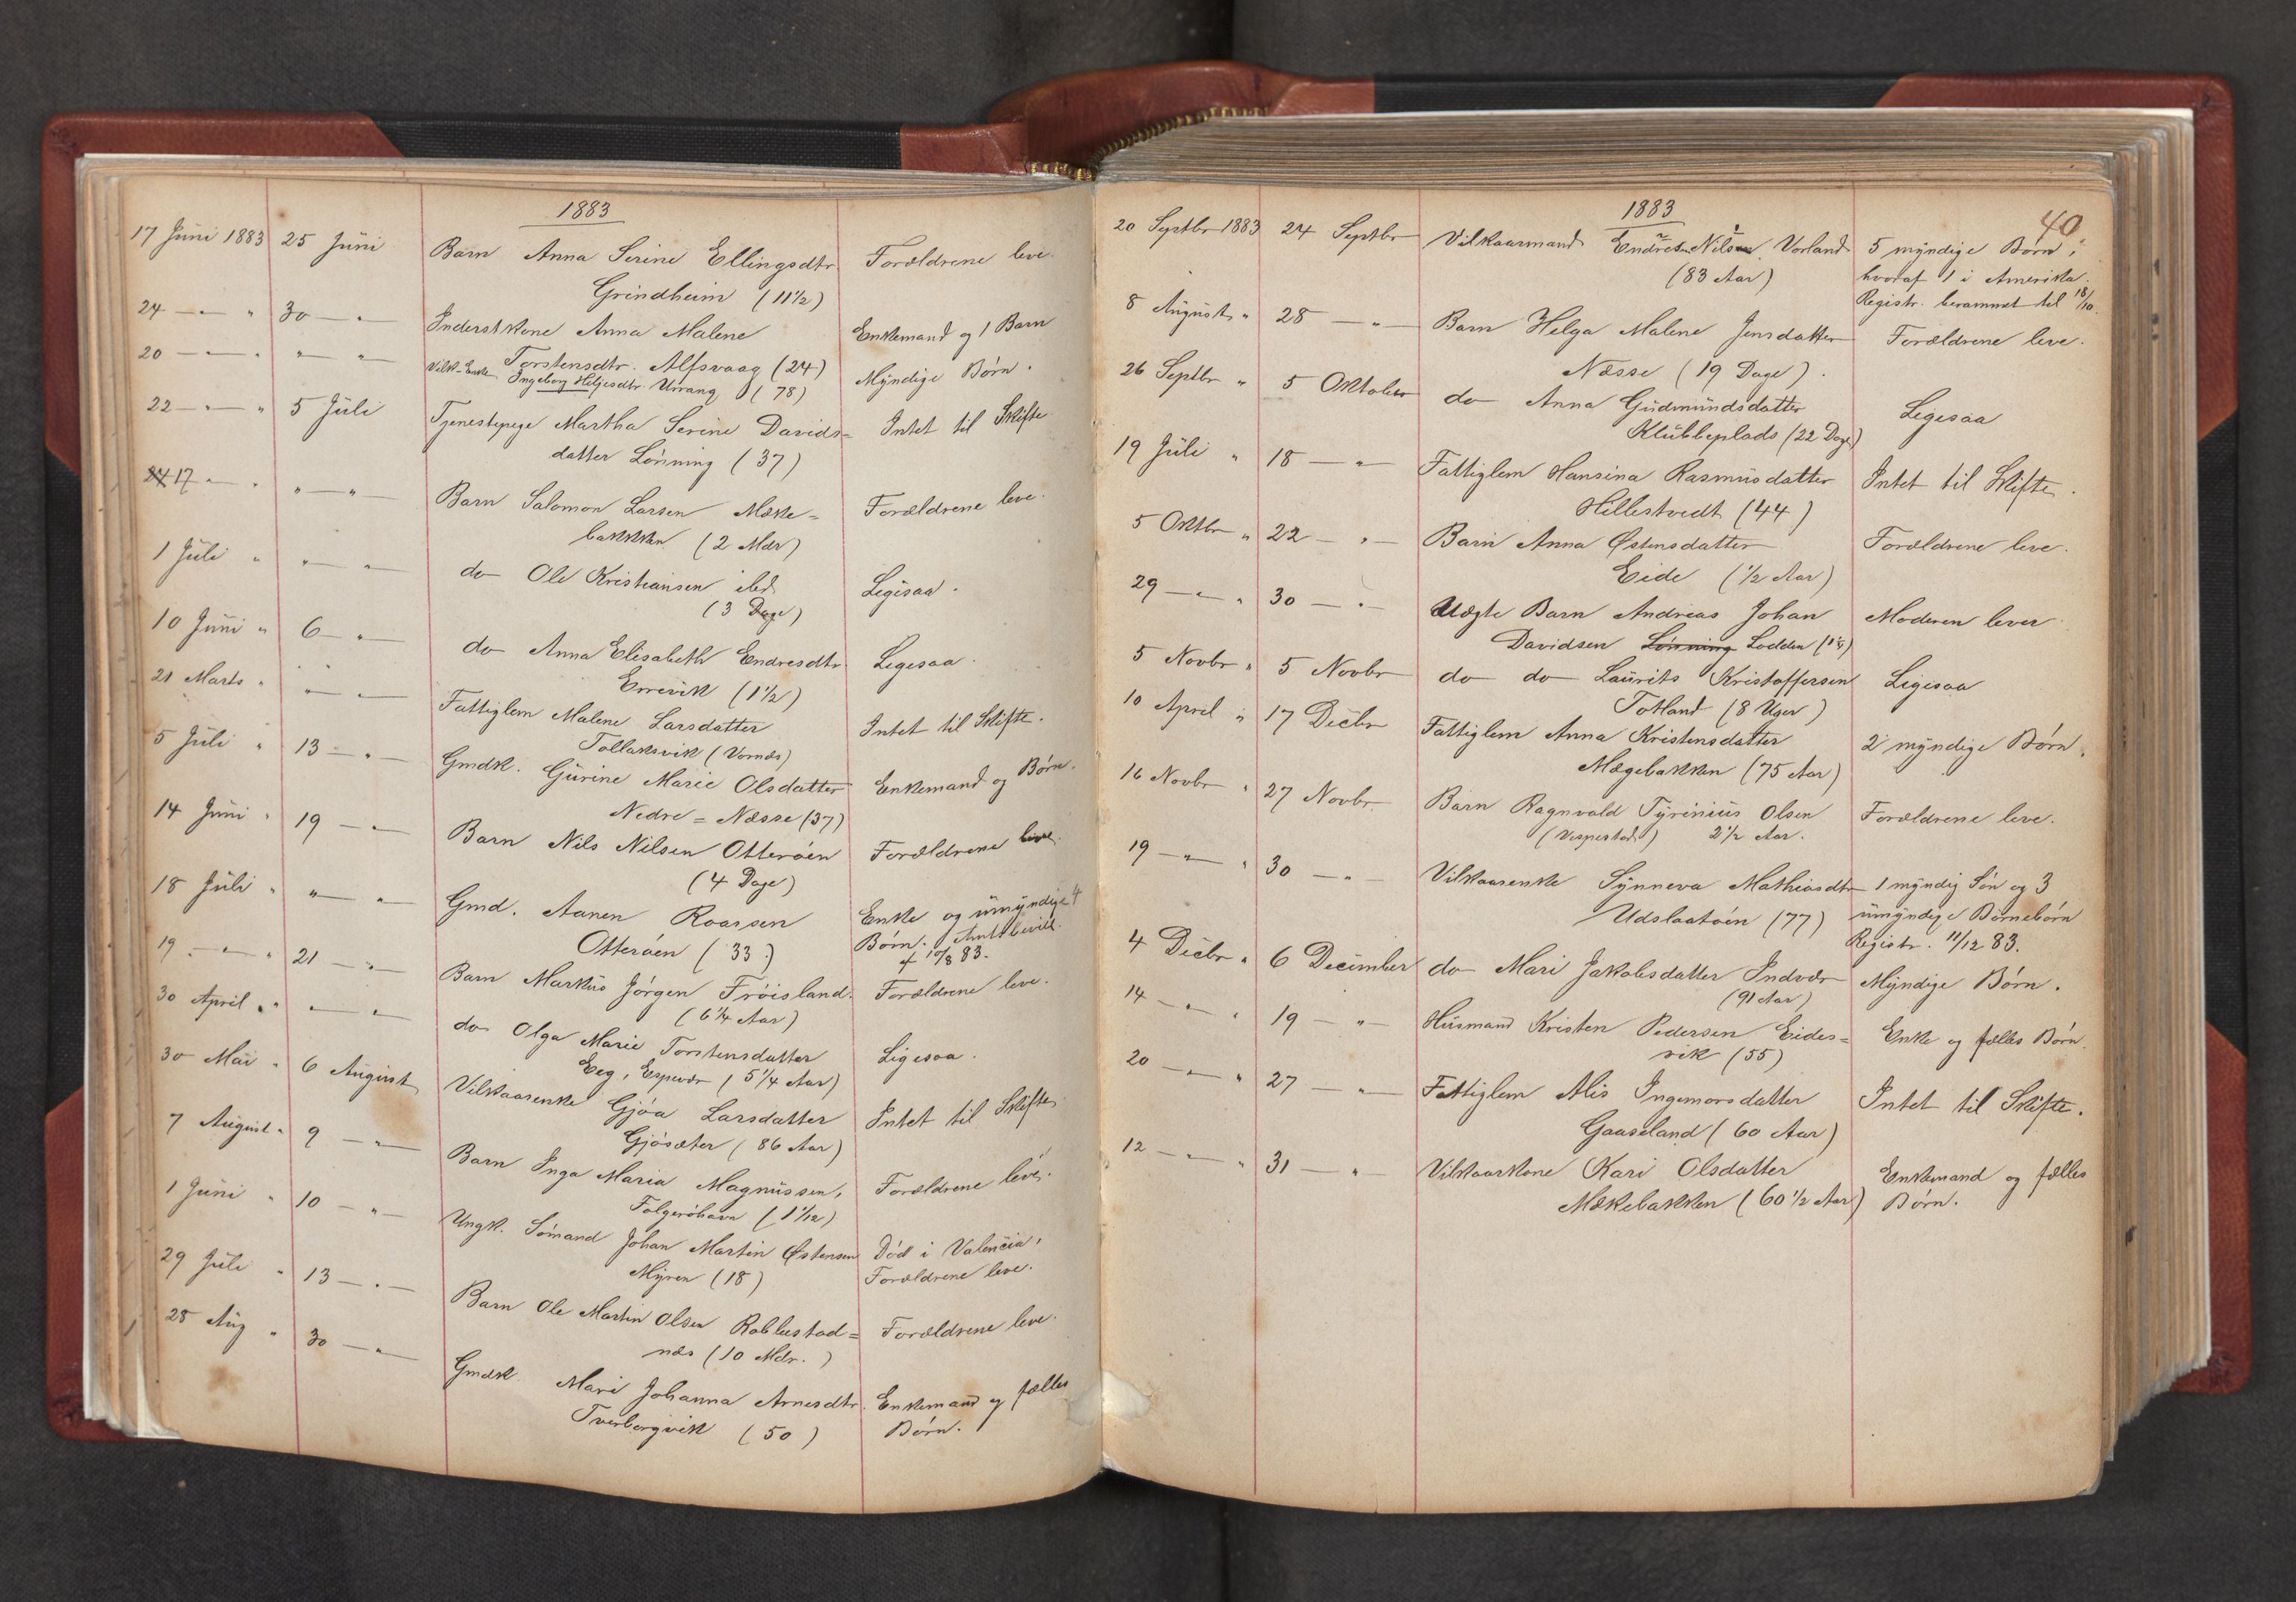 1883
17 Juni 1883 25 Juni Barn Anna Serine Ellingsdtr Forældrene leve.
Grindheim (11½)
24 — " — " 30 — " Inderstkone Anna Malene Enkemand og 1 Barn
Torstensdtr. Alfsvaag (24)
20 — " — " " — " — Vilk-Enke Ingeborg Heljesdtr. Urrang (78) Myndige Børn.
22 — " — " 5 Juli Tjenestepige Martha Serine Davids= Intet til Skifte
datter Lønning (37)
17 — " " — " — Barn Salomon Larsen Mæke= Forældrene leve.
bakken (2 Mdr)
1 Juli " " — " — do Ole Kristiansen ibd. Ligesaa.
(3 Dage)
10 Juni " 6 — " — do Anna Elisabeth Endresdtr Ligesaa.
Errevik (1½)
21 Marts " " — " — Fattiglem Malene Larsdatter Intet til Skifte.
Tollaksvik (Vornæs)
5 Juli " 13 — " — Gmdk. Gurine Marie Olsdatter Enkemand og Børn.
Nedre=Næsse (37)
14 Juni " 19 — " — Barn Nils Nilsen Otterøen Forældrene leve.
(4 Dage)
18 Juli " " — " — Gmd. Aanen Roarsen Enke og umyndige 4
Otterøen (33) Børn. Amtsbevill.
f 10/8 83.
19 — " — " 21 — " — Barn Markus Jørgen Frøisland. Forældrene leve.
(6¼ Aar)
30 April " " — " — do Olga Marie Torstensdatter Ligesaa.
Eeg, Espevær (5¼ Aar)
30 Mai " 6 August Vilkaarenke Gjøa Larsdatter Intet til Skifte
Gjøsæter (86 Aar)
7 August " 9 — " — Barn Inga Maria Magnussen, Forældrene leve.
Folgerøhavn (1 1/12)
1 Juni " 10 — " — Ungk. Sømand Johan Martin Østensen Død i Valencia,
Myren (18) Forældrene leve.
29 Juli " 13 — " — Barn Ole Martin Olsen Robbestad= Forældrene leve.
næs (10 Mdr.)
28 Aug " 30 — " — Gmdk. Mari Johanna Arnesdtr. Enkemand og fælles
Tverborgvik (50) Børn.
1883 40
20 Septbr 1883 24 Septbr Vilkaarmand Endre Nilsen Vorland 5 myndige Børn,
(83 Aar) hvoraf 1 i Amerika.
Registr. berammet til 18/10.
8 August " 28 — " — Barn Helga Malene Jensdatter Forældrene leve.
Næsse (19 Dage).
26 Septbr " 5 Oktober do Anna Gudmundsdatter Ligesaa
Klubbeplads (22 Dage)
19 Juli " 18 — " — Fattiglem Hansina Rasmusdatter Intet til Skifte.
Hillestvedt (44)
5 Oktbr " 22 — " — Barn Anna Østensdatter Forældrene leve.
Eide (½ Aar)
29 — " — " 30 — " — Uægte Barn Andreas Johan Moderen lever
Davidsen Lønning Lodden
5 Novbr " 5 Novbr do do Laurits Kristoffersen Ligesaa
Totland (8 Uger)
10 April " 17 Decbr Fattiglem Anna Kristensdatter 2 myndige Børn.
Mægebakken (75 Aar)
16 Novbr " 27 Novbr Barn Ragnvald Tyrinius Olsen Forældrene leve.
(Vespestad) 2½ Aar.
19 — " — " 30 — " — Vilkaarenke Synneva Mathiasdtr 1 myndig Søn og 3
Udslaatøen (77) umyndige Børnebørn
Registr. 11/12 83.
4 Decbr " 6 December do Mari Jakobsdatter Indvær Myndige Børn.
(91 Aar)
14 — " — " 19 — " — Husmand Kristen Pedersen Eides= Enke og fælles Børn.
vik (55)
20 — " — " 27 — " — Fattiglem Alis Ingemorsdatter Intet til Skifte.
Gaaseland (60 Aar)
12 — " — " 31 — " — Vilkaarkone Kari Olsdatter Enkemand og fælles
Mækebakken (60½ Aar) Børn.